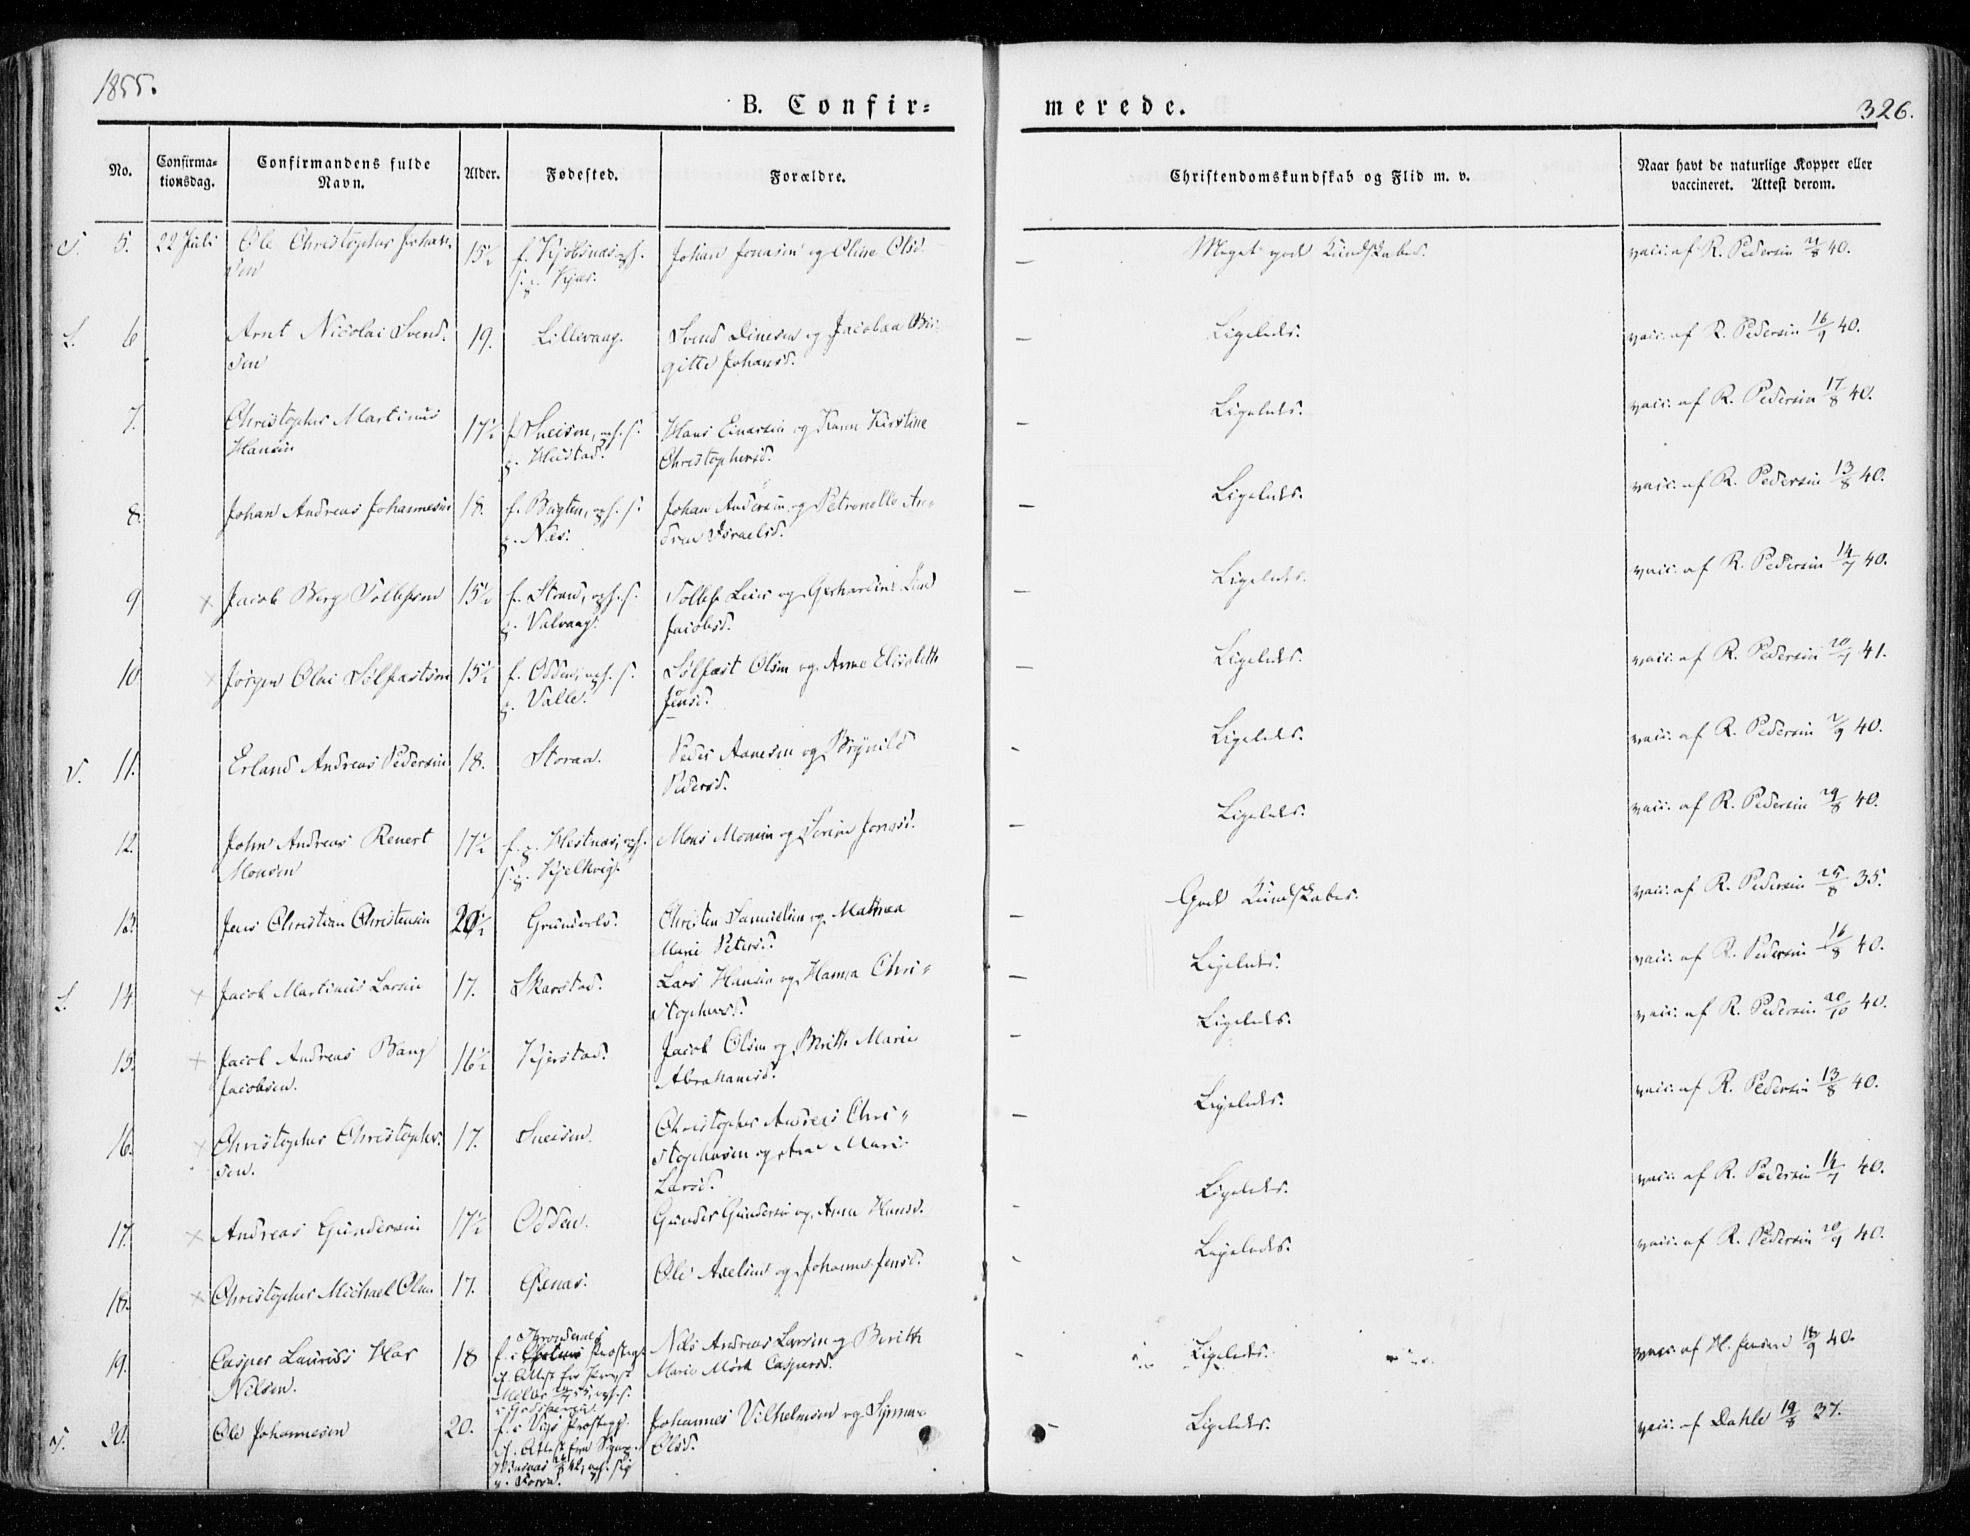 1855.
B. Confir=
merede.
326.
No.
Confirma-
tionsdag.
Confirmandens fulde
Navn.
Alder.
Fødested.
Forældre.
Christendomskundskab og Flid m. v.
Naar havt de naturlige Kopper eller
vaccineret. Attest derom.
5. 22 Juli Ole Christopher Johan- 15½ Johan Jonsen og Oline Olsd. Meget god Kundskaber. vacc. af R. Pedersen 21/8 40.
sen
L. 6 Arnt Nicolai Svend- 19. Lillevaag. Svend Dinesen og Jacobea Bir- Ligeledes. vacc. af R. Pedersen 16/9 40.
sen gitte Johansd.
7. Christopher Martinus 17½ f. Sneisen, opf. s. Hans Einarsen og Karen Kirstine Ligeledes. vacc. af R. Pedersen 17/8 40.
Hansen p. Hustad. Christophersd.
8. Johan Andreas Johannesen 18. f. Bugten, opf. s. Johan Andersen og Petronelle An- Ligeledes. vacc. af R. Pedersen 13/8 40.
p. Næs. drea Israelsd.
9 Jacob Berg Tollefsen 15½ f. Strand, opf. s. Tollef Leier og Gerhardine Ligeledes. vacc. af R. Pedersen 14/9 40.
p. Valvaag. Jacobsd.
10. Jørgen Olai Solfastsen 15½ f. Odden, opf. s. Solfast Olsen og Anne Elisabeth Ligeledes. vacc. af R. Pedersen 41.
p. Valle. Jensd.
V. 11. Erland Andreas Pedersen 18. Storaa. Peder Aanesen og Brynild Ligeledes. vacc. af R. Pedersen 40.
Pedersd.
12. John Andreas Renert 17½ f. p. Hestnæs, opf. Mons Monsen og Serine Jonsd. Ligeledes. vacc. af R. Pedersen 29/8 40.
Monsen s. p. Kjelkvig.
13. Jens Christian Christensen 20½ Christen Samuelsen og Mathea God Kundskaber. vacc. af R. Pedersen 25/8 35.
Marie Petersd.
L. 14. Jacob Martinus Larsen 17. Skarstad. Lars Hansen og Hanna Chri- Ligeledes. vacc. af R. Pedersen 16/8 40.
stophersd.
15. Jacob Andreas Bang 16½ Kjerstad. Jacob Olsen og Berith Marie Ligeledes. vacc. af R. Pedersen 20/10 40.
Jacobsen. Abrahamsd.
16. Christopher Christopher- 17. Sneisen. Christopher Andreas Chri- Ligeledes. vacc. af R. Pedersen 13/8 40.
sen. stophersen og Ane Marie
Larsd.
17. Andreas Gundersen 17½ Odden. Gunder Gundersen og Anna Hansd. Ligeledes. vacc. af R. Pedersen 40.
18. Christopher Michael Olsen 17. Ole Axelsen og Johanna Jensd. Ligeledes. vacc. af R. Pedersen 20/9 40.
19. Casper Laurids Har 18 Nils Andreas Larsen og Berith Ligeledes. vacc. af H. Jensen 18/9 40.
Nilsen. Marie Mørk Caspersd.
20. Ole Johannesen 20. Johannes Vilhelmsen og Ligeledes. vacc. af Dahle 19/8 37.
Olsd.